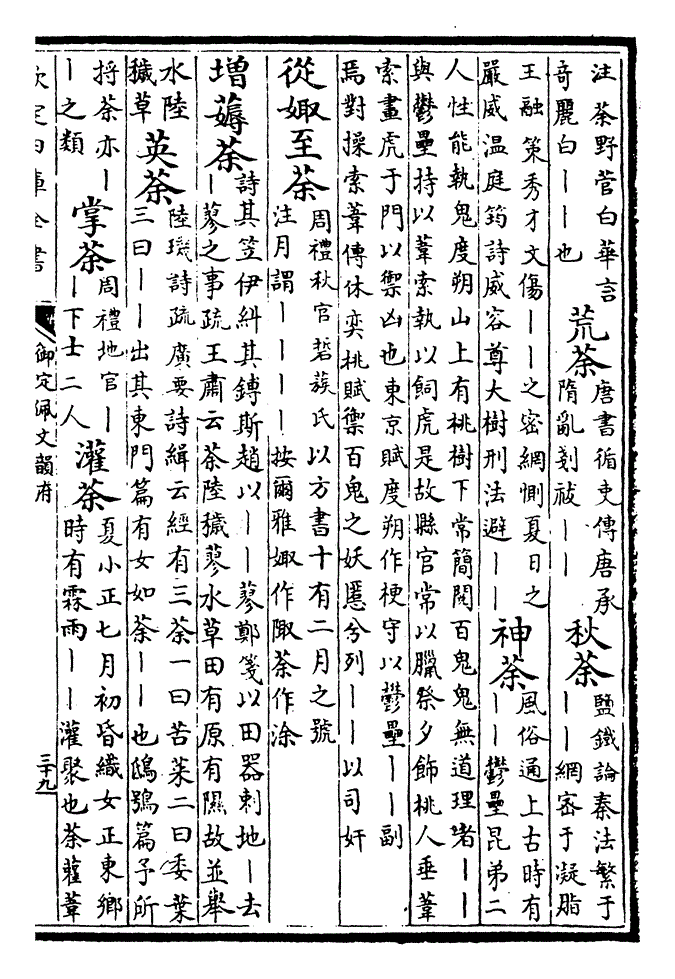 注荼野菅白華言
奇麗白丨丨也
荒荼
唐書循吏傳唐承
隋亂剗祓丨丨
秋荼
鹽鐵論秦法繁于
丨丨網密于凝脂
王融策秀才文傷丨丨之密網惻夏日之
嚴威温庭筠詩威容尊大樹刑法避丨丨
神荼
風俗通上古時有
丨丨鬱壘昆弟二
人性能執鬼度朔山上有桃樹下常簡閱百鬼鬼無道理者丨丨
與鬱壘持以葦索執以飼虎是故縣官常以臘祭夕飾桃人垂葦
索畫虎于門以禦凶也東京賦度朔作梗守以鬱壘丨丨副
焉對操索葦傅休奕桃賦禦百鬼之妖慝兮列丨丨以司奸
從娵至荼
周禮秋官硩蔟氏以方書十有二月之號
注月謂丨丨丨丨按爾雅娵作陬荼作涂
增薅荼
詩其笠伊糾其鎛斯趙以丨丨蓼鄭箋以田器刺地丨去
丨蓼之事疏王肅云荼陸穢蓼水草田有原有隰故並舉
水陸
穢草
英荼
陸璣詩疏廣要詩緝云經有三荼一曰苦菜二曰委葉
三曰丨丨出其東門篇有女如荼丨丨也鴟鴞篇予所
捋荼亦丨
丨之類
掌荼
周禮地官丨
丨下士二人
灌荼
夏小正七月初昏織女正東鄉
時有霖雨丨丨灌聚也荼雚葦
欽定四庫全書
御定佩文韻府
三十九